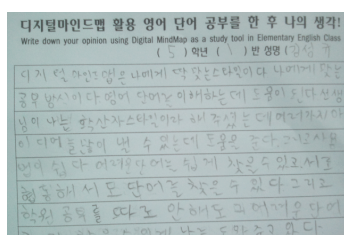 디지털마인드맵 활용 영어 단어 공부를 한 후 나의 생각!
Write down your opinion using Digital MindMap as a study tool in Elementary English Class
( 5 ) 학년 ( 1 ) 반 성명 (김성규
디지털 마인드맵은 나에게 딱 맞는스타일이다 나에게 맞는
공부 방식이다 영어 단어를 이해하는데 도움이 된다 선생
님이 나는 확산자스타일이라 해주셨는데 여러가지 아
이디어를 많이 낼 수 있는데 도움을 준다 그리고 사용
법이 쉽다 어려운 단어를 쉽게 찾을 수 있고 서로
협동해서 모단어를 찾을 수 있다 그리고
학원 공부를 따로 안해도 되 어려운 단어